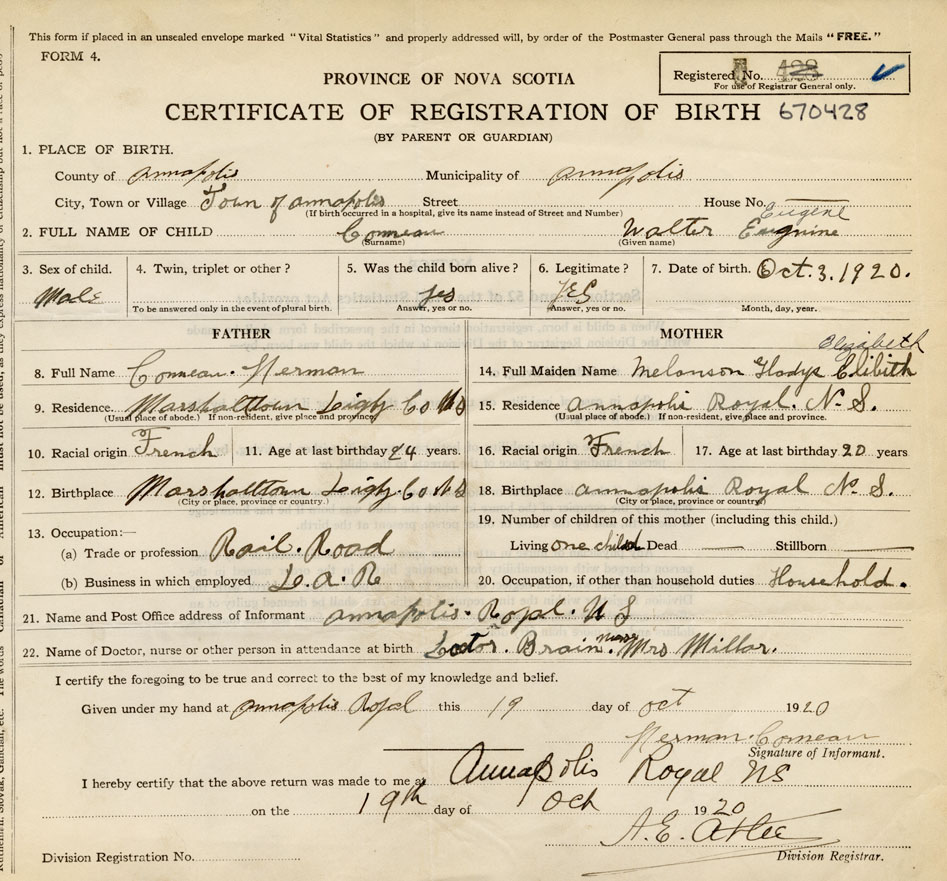 This form if placed in an unsealed envelope marked "Vital Statistics" and properly addressed will, by order of the Postmaster General pass through the Mails "FREE."
FORM 4.
Registered No. 428
For use of Registrar General only.
PROVINCE OF NOVA SCOTIA
CERTIFICATE OF REGISTRATION OF BIRTH 670428
(BY PARENT OR GUARDIAN)
1. PLACE OF BIRTH.
County of Annapolis Municipality of Annapolis
City, Town or Village Town of annapolis Street House No.
(If birth occurred in a hospital, give its name instead of Street and Number)
Eugene
2. FULL NAME OF CHILD Comeau Walter Eugnine
(Surname) (Given name)
3. Sex of child. 4. Twin, triplet or other? 5. Was the child born alive? 6. Legitimate? 7. Date of birth. Oct. 3. 1920.
Male yes YES
To be answered only in the event of plural birth. Answer, yes or no. Answer, yes or no. Month, day, year.
FATHER
8. Full Name Comeau. Herman
9. Residence Marshalltown Digby Co NS
(Usual place of abode.) If non-resident, give place and province.
10. Racial origin French 11. Age at last birthday 24 years.
12. Birthplace Marshalltown Digby Co NS
(City or place, province or country.)
13. Occupation:—
(a) Trade or profession Rail. Road
(b) Business in which employed D. a. R
MOTHER
Elizabeth
14. Full Maiden Name Melanson Gladys Elibith
15. Residence Annapolis Royal. N. S.
(Usual place of abode.) If non-resident, give place and province.
16. Racial origin French 17. Age at last birthday 20 years
18. Birthplace annapolis Royal N. S.
(City or place, province or country)
19. Number of children of this mother (including this child.)
Living one child Dead Stillborn
20. Occupation, if other than household duties Household.
21. Name and Post Office address of Informant annapolis. Royal. N S
22. Name of Doctor, nurse or other person in attendance at birth Doctor. Brain. Mrs Millar.
I certify the foregoing to be true and correct to the best of my knowledge and belief.
Given under my hand at annapolis Royal this 19 day of oct 1920
Herman. Comeau
Signature of Informant.
I hereby certify that the above return was made to me at Annapolis Royal NS
on the 19th day of Oct 1920
A. E. Atlee
Division Registration No. Division Registrar.